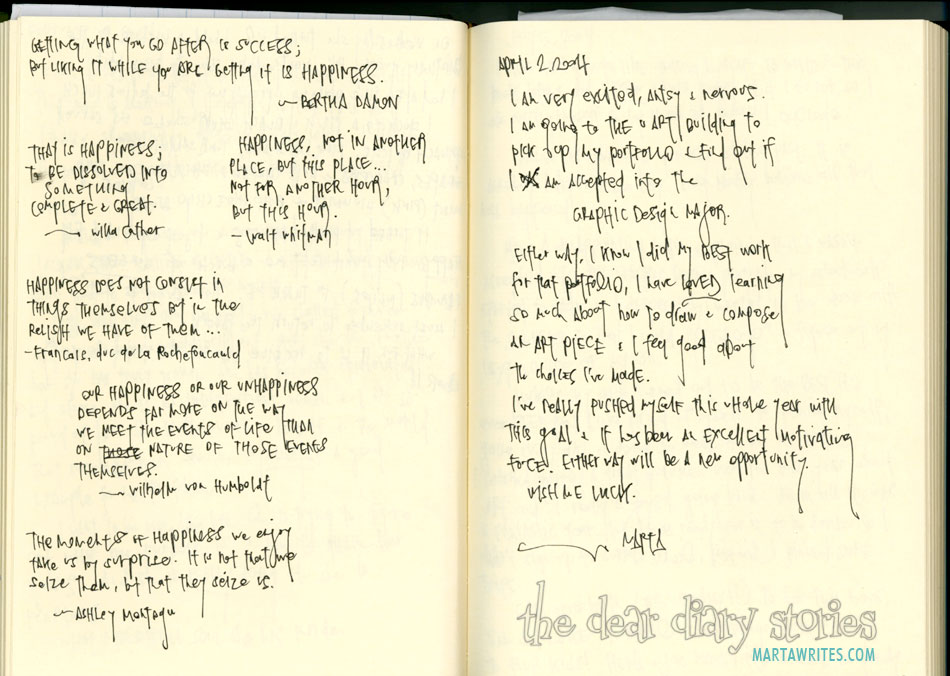 GETTING WHAT YOU GO AFTER IS SUCCESS;
BUT LIKING IT WHILE YOU ARE GETTING IT IS HAPPINESS.
~ BERTHA DAMON
THAT IS HAPPINESS;
TO BE DISSOLVED INTO
SOMETHING
COMPLETE & GREAT.
~ Willa Cather
HAPPINESS, NOT IN ANOTHER
PLACE, BUT THIS PLACE...
NOT FOR ANOTHER HOUR,
BUT THIS HOUR.
- Walt Whitman
HAPPINESS DOES NOT CONSIST IN
THINGS THEMSELVES BUT IN THE
RELISH WE HAVE OF THEM...
- Francois, duc de la Rochefoucauld
OUR HAPPINESS OR OUR UNHAPPINESS
DEPENDS FAR MORE ON THE WAY
WE MEET THE EVENTS OF LIFE THAN
ON THOSE NATURE OF THOSE EVENTS
THEMSELVES.
~ Wilhelm von Humboldt
The moments of Happiness we enjoy
take us by surprise. It is not that we
seize them, but that they seize us.
~ ASHLEY Montagu
APRIL 2. 2004
I am very excited, antsy & nervous.
I am going to THE U ART Building to
pick up my portfolio & find out if
I am accepted into the
GRAPHIC DESIGN MAJOR.
Either way, I know I did my BEST work
for that portfolio, I have LOVED learning
so much about how to draw & compose
an ART PIECE & I feel good about
the choices I've made.
I've really pushed myself this whole year with
THIS goal & it has been an excellent motivating
FORCE. EITHER WAY will be a new opportunity.
WISH ME LUCK.
MARTA
the dear diary stories
MARTAWRITES.COM